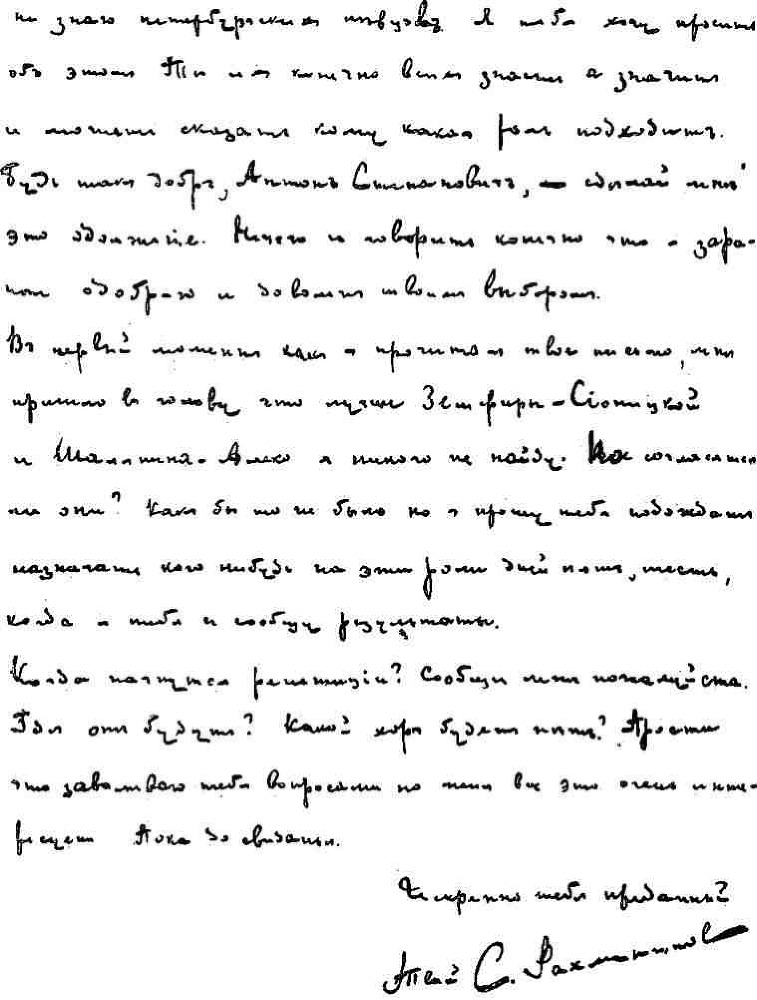 не знаю петербургских певцовъ. Я тебя хочу просить
объ этомъ Ты ихъ конечно всѣхъ знаешь а значитъ
и можешь сказать кому какая роль подходитъ.
Будь такъ добръ, Антонъ Степановичъ, – сдѣлай мнѣ
это одолженіе. Нечего и говорить конечно что я зара-
нѣе одобряю и доволенъ твоимъ выборомъ.
Въ первый моментъ какъ я прочиталъ твое письмо, мнѣ
пришло въ голову что лучше Земфиры-Сіоницкой
и Шаляпина-Алеко я никого не найду. Но согласятся
ли они? Какъ бы то не было но я прошу тебя подождать
назначать кого нибудь на эти роли дней пять, шесть,
когда я тебѣ и сообщу результаты.
Когда начнутся репетиціи? Сообщи мнѣ пожалуйста.
Гдѣ они будутъ? Какой хоръ будетъ пѣть? Прости
что заваливаю тебя вопросами но меня все это очень инте-
ресуетъ Пока до свиданья.
Искренно тебѣ преданный
Твой С. Рахманиновъ